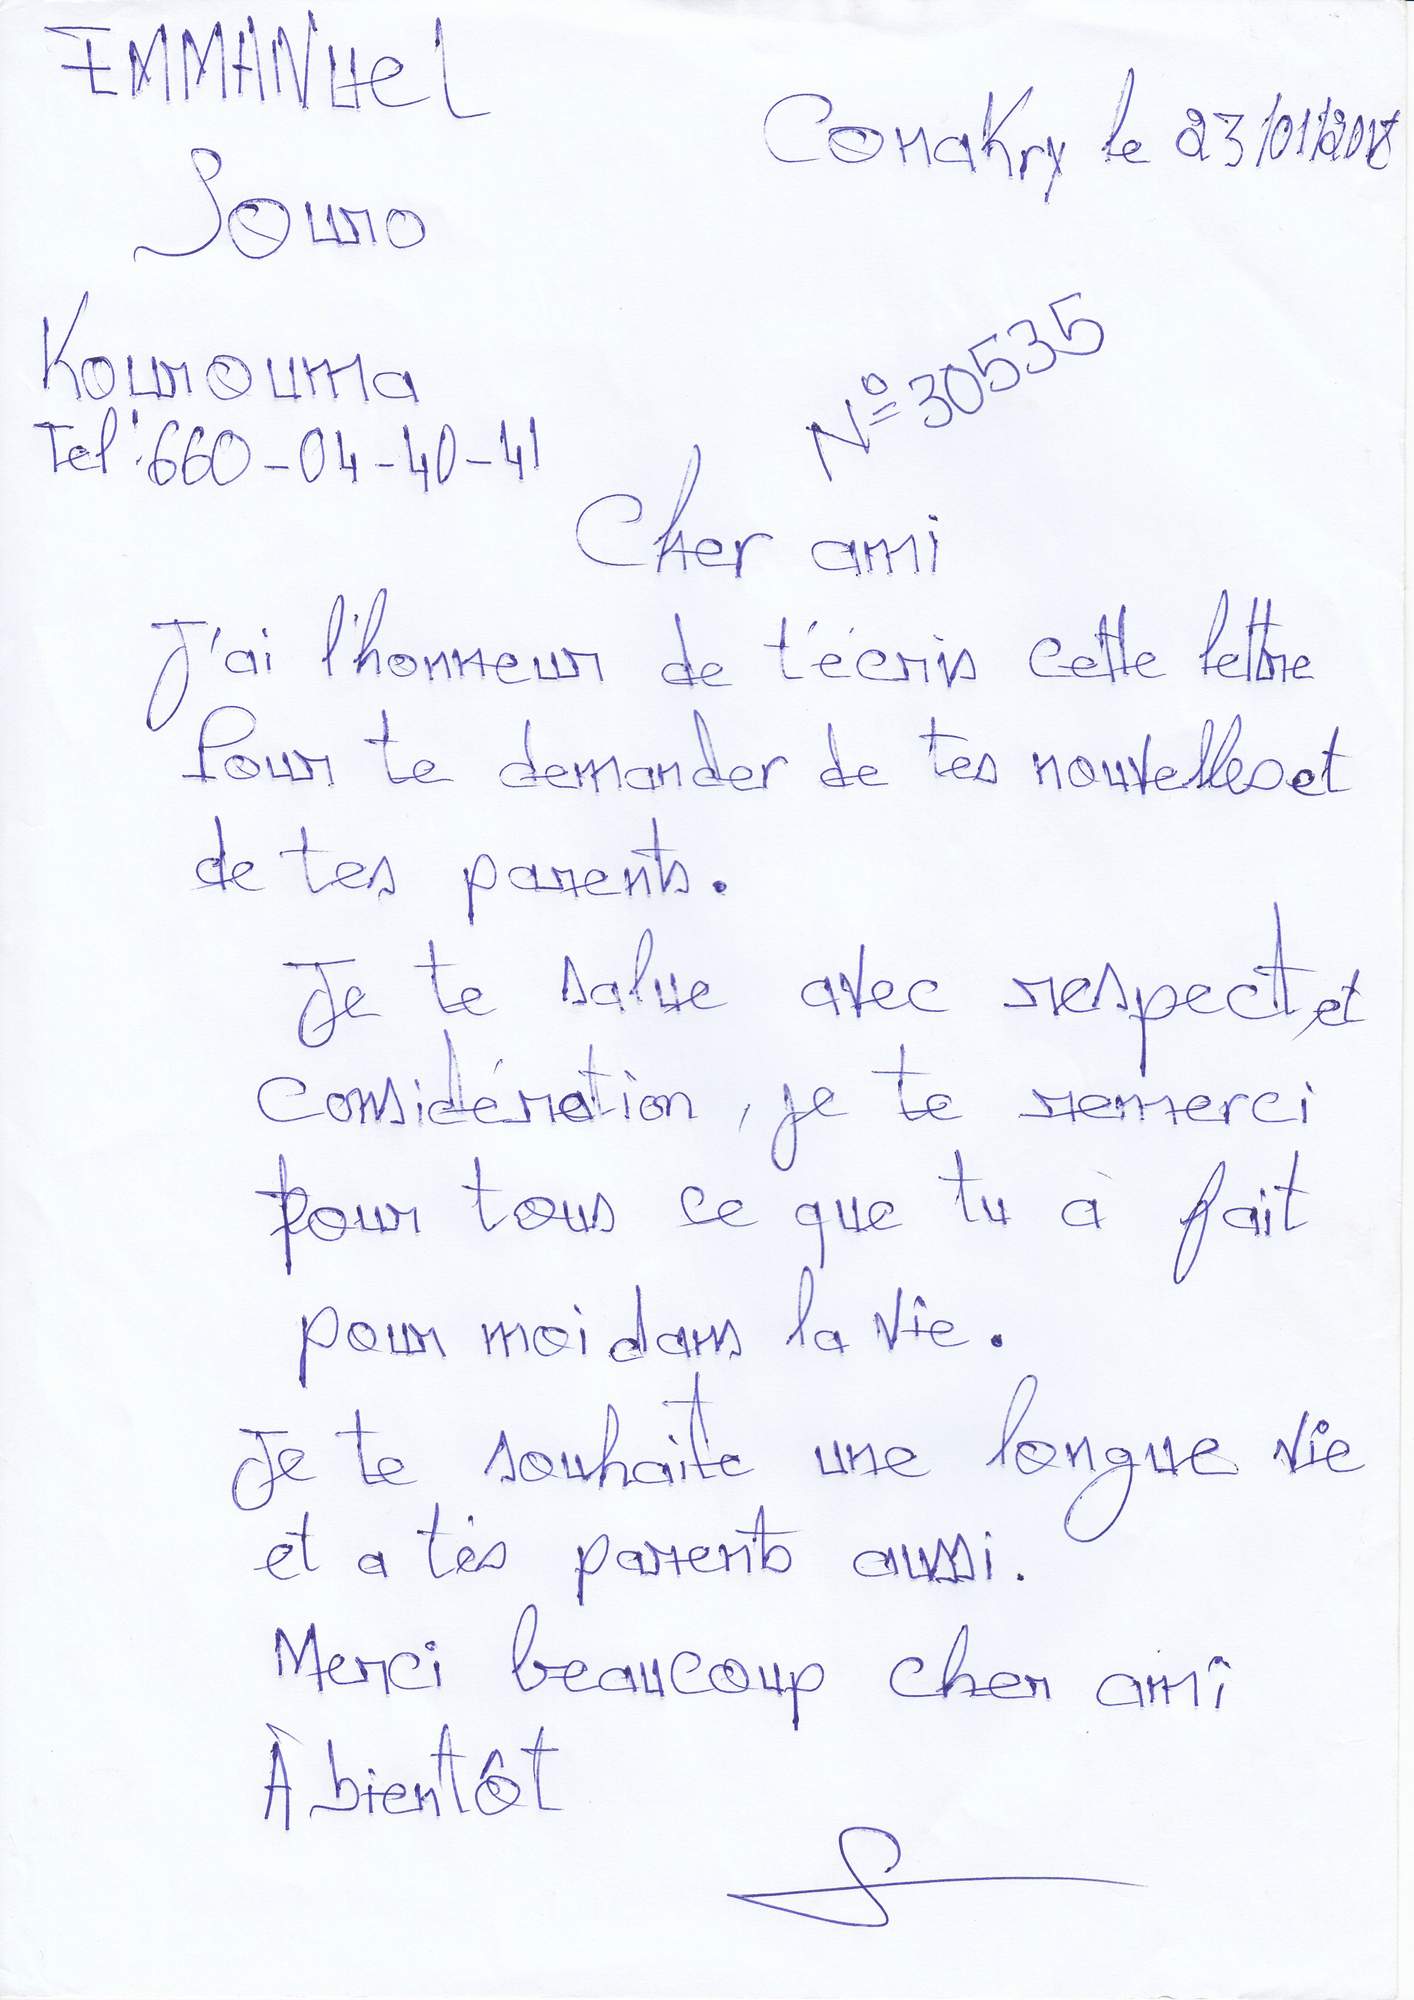 EMMANUel
Conakry le 23/01/2018
Souro
Kourouma
N° 30535
Tel: 660-04-40-41
Cher ami
J'ai l'honneur de t'écris cette lettre
Pour te demander de tes nouvelles et
de tes parents.
Je te salue avec respect, et
considération, je te remerci
pour tous ce que tu à fait
pour moi dans la vie.
Je te souhaite une longue vie
et a tes parents aussi.
Merci beaucoup cher ami
À bientôt